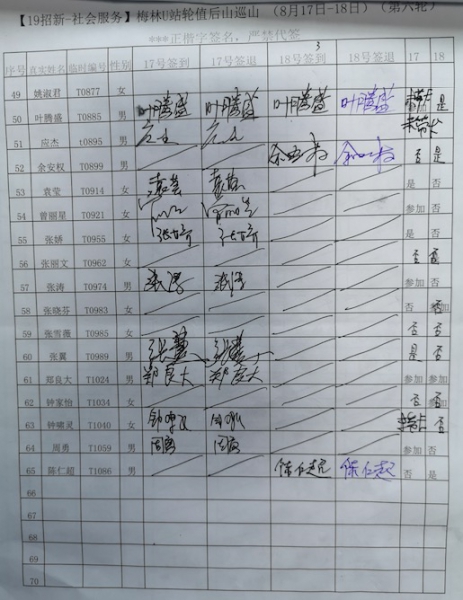 【19招新-社会服务】梅林U站轮值后山巡山 （8月17日-18日）（第六轮）
***正楷字签名，严禁代签
3
序号 真实姓名 临时编号 性别 17号签到 17号签退 18号签到 18号签退 17 18
49 姚淑君 T0877 女
50 叶腾盛 T0885 男 叶腾盛 叶腾盛 叶腾盛 叶腾盛 是
51 应杰 t0895 男
52 余安权 T0899 男 否 是
53 袁莹 T0914 女 袁莹 袁莹 是 否
54 曾丽星 T0921 女 参加 否
55 张娇 T0955 女 是 否
56 张丽文 T0962 女 否 否
57 张涛 T0974 男 张涛 张涛 参加 否
58 张晓芬 T0983 女 否
59 张雪薇 T0985 男 否 否
60 张翼 T0989 男 张翼 张翼 是 否
61 郑良大 T1024 男 郑良大 郑良大 参加 参加
62 钟家怡 T1034 女 否 否
63 钟啸灵 T1040 女 否
64 周勇 T1059 男 周勇 周勇 参加 否
65 陈仁超 T1086 男 陈仁超 陈仁超 否 是
66
67
68
69
70